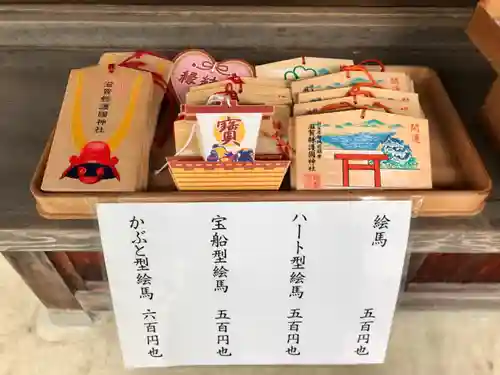 滋賀縣護國神社
縁結
寳
開運
滋賀縣護國神社
絵馬 五百円也
ハート型絵馬 五百円也
宝船型絵馬 五百円也
かぶと型絵馬 六百円也